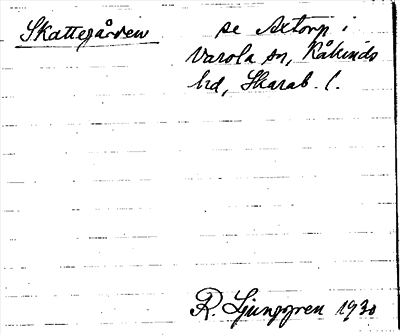 Skattegården se Axtorp i
Varola sn, Kåkinds
hd, Skarab. l.
R. Ljunggren 1930